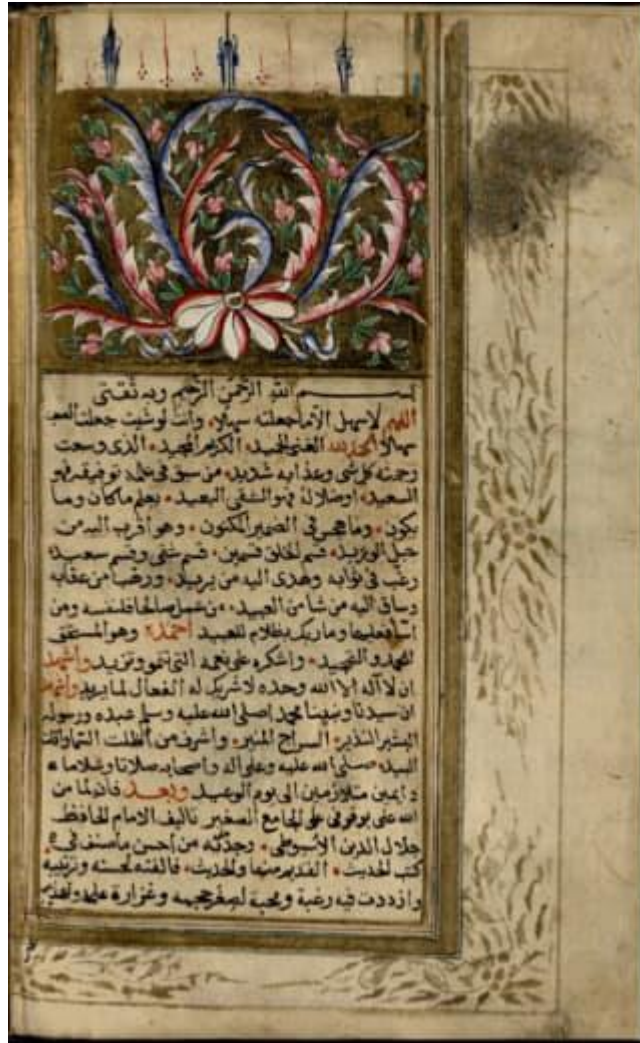 بسم الله الرحمن الرحيم وبه ثقتي
اللهم لا سهل الا ما جعلته سهلا وانت لو شيت جعلت الصعب
سهلا الحمد لله الغني الحميد الكريم المجيد الذي وسعت
رحمته كل شي وعذابه شديد من سبق في علمه توفيقه فهو
السعيد او ضلاله فهو الشقي البعيد يعلم ما كان وما
يكون وما هجس في الضمير المكنون وهو اقرب اليه من
حبل الوريد قسم الخلق قسمين قسم شقي وقسم سعيد
رغب في ثوابه وهدى اليه من يريد ورهب من عقابه
وساق اليه من شا من العبيد من عمل صالحا فلنفسه ومن
اسا فعليها وما ربك بظلام للعبيد احمده وهو المستحق
للحمد والتمجيد واشكره على نعمه التي تنمو وتزيد واشهد
ان لا اله الا الله وحده لا شريك له الفعال لما يريد واشهد
ان سيدنا ونبينا محمد اصلى الله عليه وسلم عبده ورسوله
البشير النذير السراج المنير واشرف من اظلت السما واقلت
البيد صلى الله عليه وعلى اله واصحابه صلاتا وسلاما
دايمين متلازمين الى يوم الوعيد وبعد فان لما من
الله على بوقوفي على الجامع الصغير تاليف الامام الحافظ
جلال الدين الاسيوطي وجدته من احسن ما صنف في
كتب الحديث القديم منها والحديث فالفته لحسنه وترتيبه
وازددت فيه رغبة ومحبة لصغر حجمه وغزارة علمه